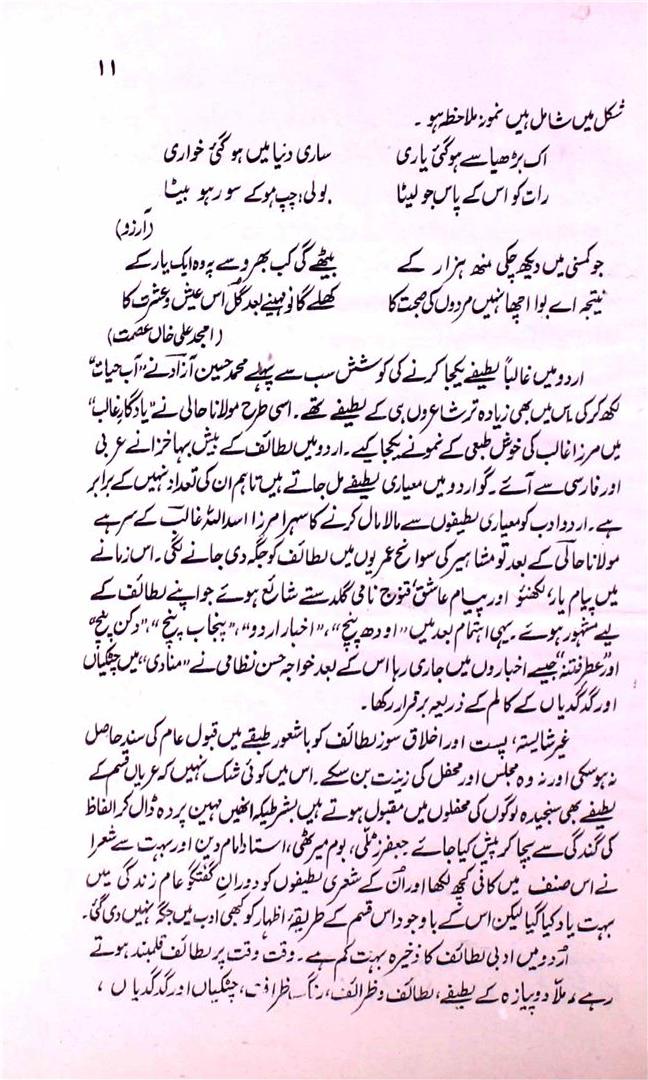 ۱۱
شکل میں شامل ہیں نمونہ ملاحظہ ہو ۔
اک بڑھیا سے ہو گئی یاری ساری دنیا میں ہو گئی خواری
رات کو اس کے پاس جو لیٹا بولی؛ چپ ہو کے سو رہو بیٹا
(آرزو)
جو کمسنی میں دیکھ چکی منھ ہزار کے بیٹھے گی کب بھروسے پہ وہ ایک یار کے
نتیجہ اے بوا اچھا نہیں مردوں کی صحبت کا کھلے گا نو مہینے بعد گل اس عیش و عشرت کا
(امجد علی خاں عصمت)
اردو میں غالباً لطیفے یکجا کرنے کی کوشش سب سے پہلے محمد حسین آزاد نے "آب حیات"
لکھ کر کی اس میں بھی زیادہ تر شاعروں ہی کے لطیفے تھے۔ اسی طرح مولانا حالی نے "یادگار غالب"
میں مرزا غالب کی خوش طبعی کے نمونے یکجا کیے ۔ اردو میں لطائف کے بیش بہا خزانے عربی
اور فارسی سے آئے ۔ گو اردو میں معیاری لطیفے مل جاتے ہیں تاہم ان کی تعداد نہیں کے برابر
ہے ۔ اردو ادب کو معیاری لطیفوں سے مالا مال کرنے کا سہرا مرزا اسد اللہ غالب کے سر ہے
مولانا حالی کے بعد تو مشاہیر کی سوانح عمریوں میں لطائف کو جگہ دی جانے لگی ۔ اس زمانے
میں پیام یار، لکھنؤ اور پیام عاشق، قنوج نامی گلدستے شائع ہوئے جو اپنے لطائف کے
لیے مشہور ہوئے ۔ یہی اہتمام بعد میں "اودھ پنچ"، "اخبار اردو"، "پنجاب پنچ"، "دکن پنچ"
اور "عطر فتنہ" جیسے اخباروں میں جاری رہا اس کے بعد خواجہ حسن نظامی نے "منادی" میں چٹکیاں
اور گدگدیاں کے کالم کے ذریعہ برقرار رکھا۔
غیر شایستہ، پست اور اخلاق سوز لطائف کو باشعور طبقے میں قبول عام کی سند حاصل
نہ ہو سکی اور نہ وہ مجلس اور محفل کی زینت بن سکے ۔ اس میں کوئی شک نہیں کہ عریاں قسم کے
لطیفے بھی سنجیدہ لوگوں کی محفلوں میں مقبول ہوتے ہیں بشرطیکہ انھیں مہین پردہ ڈال کر الفاظ
کی گندگی سے بچا کر پیش کیا جائے ۔ جعفر زٹلی، بوم میرٹھی، استاد امام دین اور بہت سے شعرا
نے اس صنف میں کافی کچھ لکھا اور ان کے شعری لطیفوں کو دوران گفتگو عام زندگی میں
بہت یاد کیا گیا لیکن اس کے باوجود اس قسم کے طریقۂ اظہار کو کبھی ادب میں جگہ نہیں دی گئی۔
اردو میں ادبی لطائف کا ذخیرہ بہت کم ہے ۔ وقت وقت پر لطائف قلمبند ہوتے
رہے، ملا دوپیازہ کے لطیفے، لطائف و ظرائف، رنگ ظرافت، چٹکیاں اور گدگدیاں ،